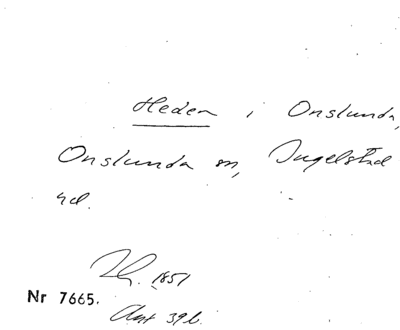 Heden i Onslunda,
Onslunda sn, Ingelstad
hd.
1851
Nr 7665.
Avt 39 b.